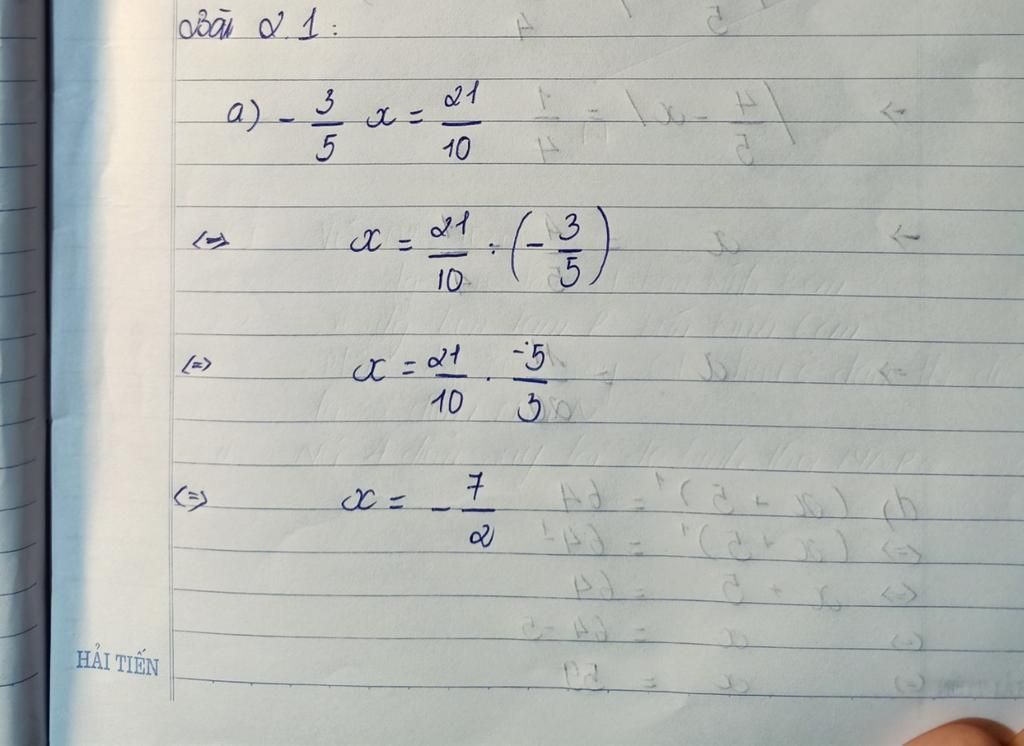 Bài 2.1:
a) - 3/5 x = 21/10
<=> x = 21/10 : (- 3/5)
<=> x = 21/10 . -5/3
<=> x = - 7/2
HẢI TIẾN